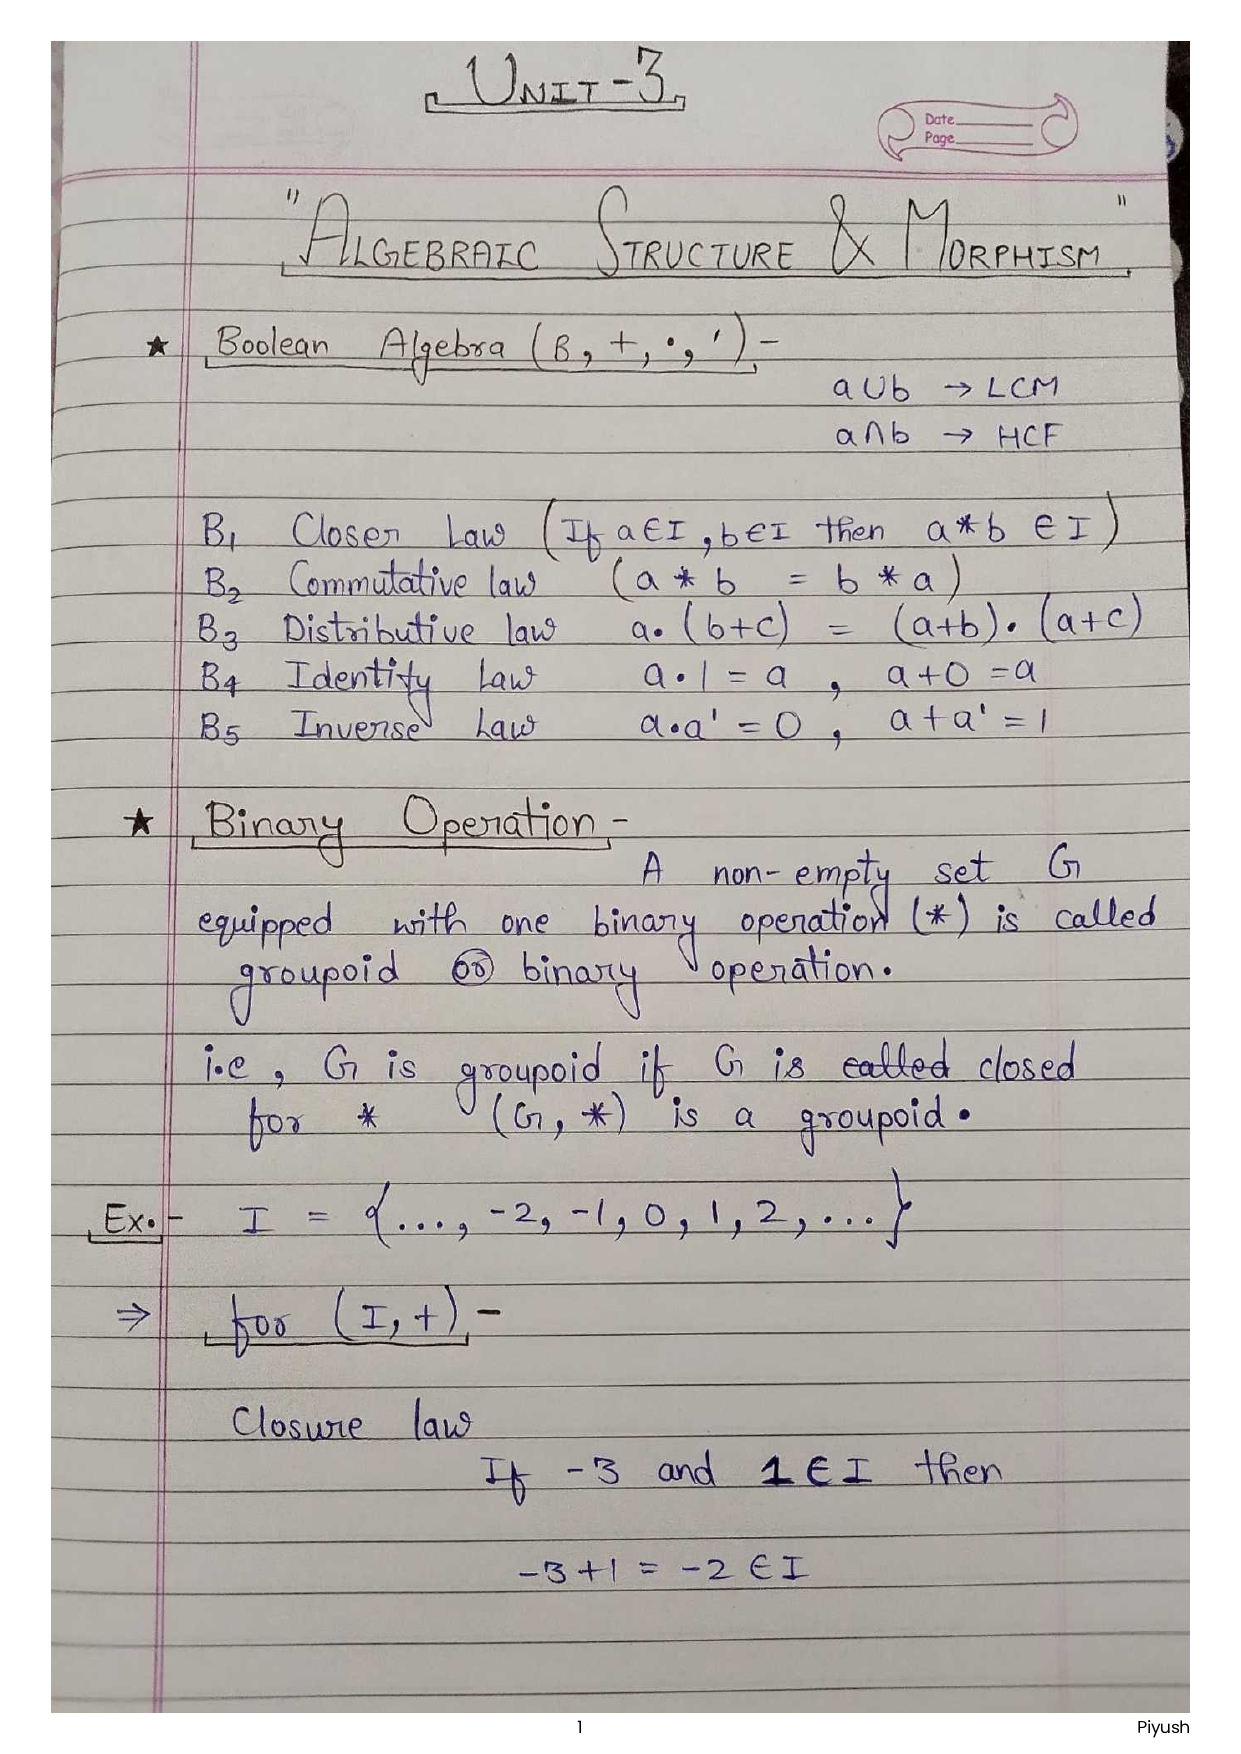 UNIT-3
Date
Page
"ALGEBRAIC STRUCTURE & MORPHISM"
★ Boolean Algebra (B, +, •, ') -
a∪b → LCM
a∩b → HCF
B₁ Closer Law (If a∈I, b∈I then a*b ∈ I)
B₂ Commutative law (a * b = b * a)
B₃ Distributive law a• (b+c) = (a+b)• (a+c)
B₄ Identify Law a•1 = a , a+0 = a
B₅ Inverse Law a•a' = 0 , a+a' = 1
★ Binary Operation -
A non-empty set G
equipped with one binary operation (*) is called
groupoid or binary operation.
i.e, G is groupoid if G is called closed
for * (G, *) is a groupoid.
Ex.- I = {..., -2, -1, 0, 1, 2, ...}
⇒ for (I, +) -
Closure law
If -3 and 1 ∈ I then
-3+1 = -2 ∈ I
1
Piyush